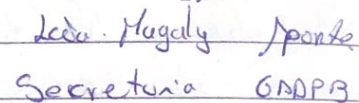 Lcda. Magaly Aponte
Secretaria GADPB